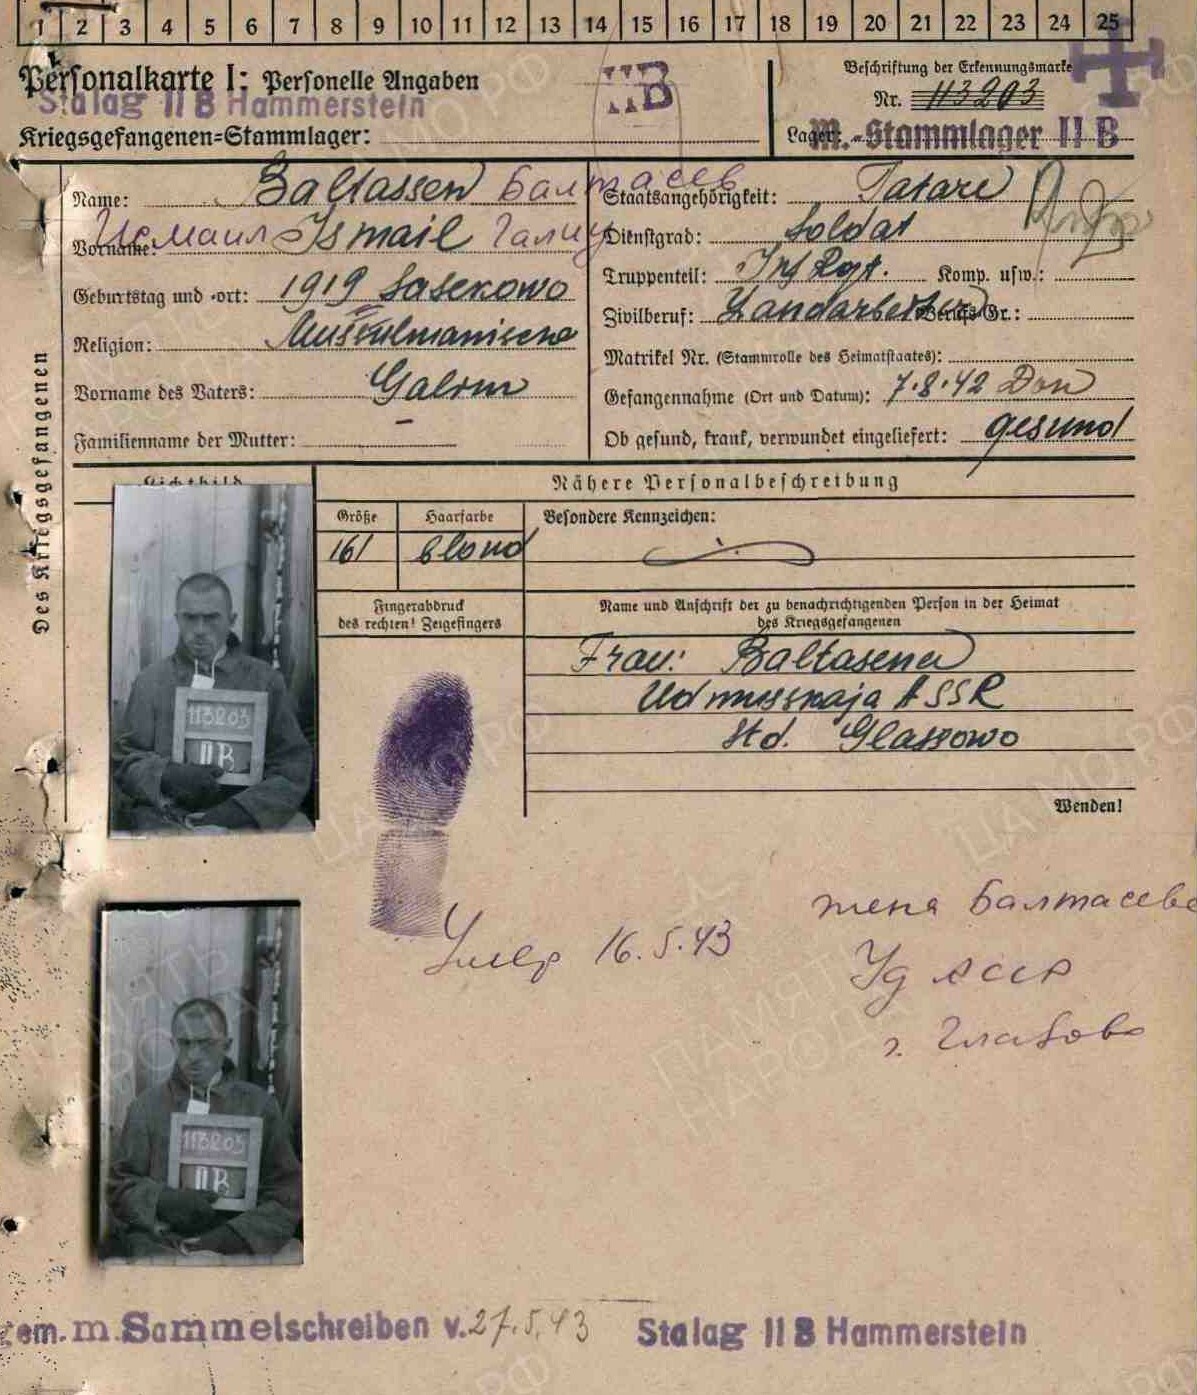 1 2 3 4 5 6 7 8 9 10 11 12 13 14 15 16 17 18 19 20 21 22 23 24 25
Personalkarte I: Personelle Angaben
Stalag II B Hammerstein
Kriegsgefangenen=Stammlager:
II B
Beschriftung der Erkennungsmarke
Nr. 113203
Lager: M.-Stammlager II B
Des Kriegsgefangenen
Name: Baltassew Балтасев
Vorname: Исмаил Ismail Галиу
Geburtstag und -ort: 1919 Sasekowo
Religion: Mussulmanisch
Vorname des Vaters: Galim
Familienname der Mutter: –
Staatsangehörigkeit: Tatare
Dienstgrad: Soldat
Truppenteil: Inf Rgt. Komp. usw.:
Zivilberuf: Landarbeiter Berufs-Gr.:
Matrikel Nr. (Stammrolle des Heimatstaates):
Gefangennahme (Ort und Datum): 7.8.42 Don
Ob gesund, krank, verwundet eingeliefert: gesund
Lichtbild
Nähere Personalbeschreibung
Größe Haarfarbe Besondere Kennzeichen:
161 blond
Fingerabdruck
des rechten! Zeigefingers
Name und Anschrift der zu benachrichtigenden Person in der Heimat
des Kriegsgefangenen
Frau: Baltasewa
Udmusskaja ASSR
Std. Glassowo
Wenden!
113203
II B
Умер 16.5.43
жена Балтасева
Уд АССР
г. Глазово
113203
II B
gem. m. Sammelschreiben v. 27.5.43 Stalag II B Hammerstein
ЦАМО РФ
ПАМЯТЬ
НАРОДА